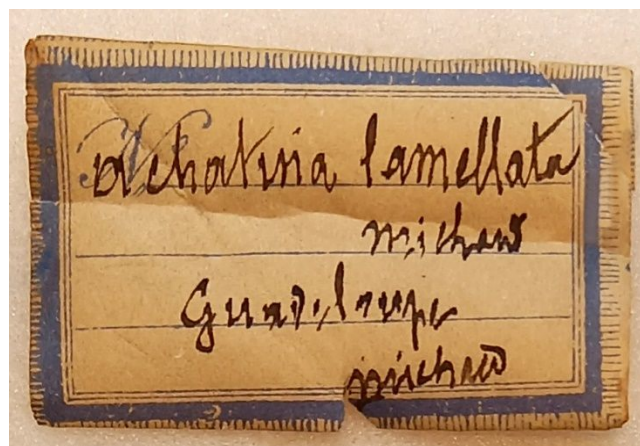 achatina lamellata
michaud
Guadeloupe
michaud